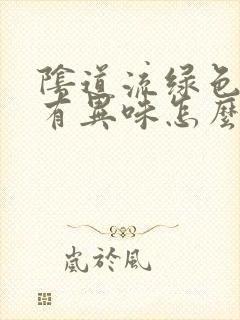 陰道流绿色
有異味怎麼
嵐於風